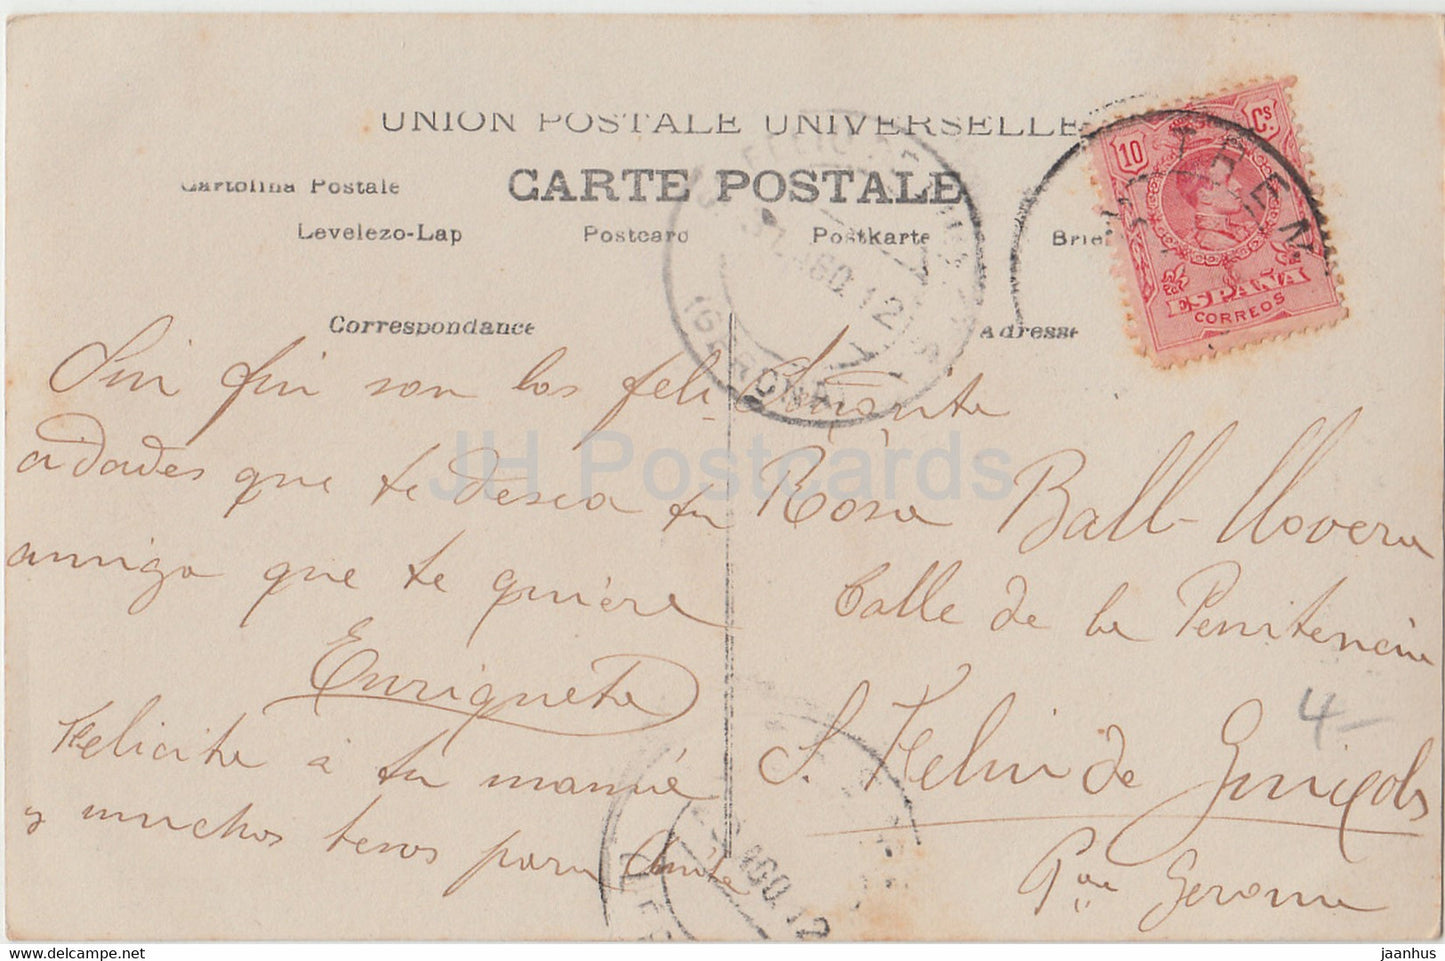 UNION POSTALE UNIVERSELLE
Cartolina Postale CARTE POSTALE
Levelezo-Lap Postcard Postkarte
Correspondance Adresse
10 Cs.
ESPAÑA
CORREOS
31 AGO. 12
(GERONA)
AGO. 12
Sin fin son las feli-
cidades que te desea tu
amiga que te quiere
Enriqueta
Felicite á tu mamá
y muchos besos para
Señorita
Rosa Ball-llovera
Calle de la Penitencia
S. Feliu de Guixols
Gerona
4-
JH Postcards
https://www.hippostcard.com
jaanhus